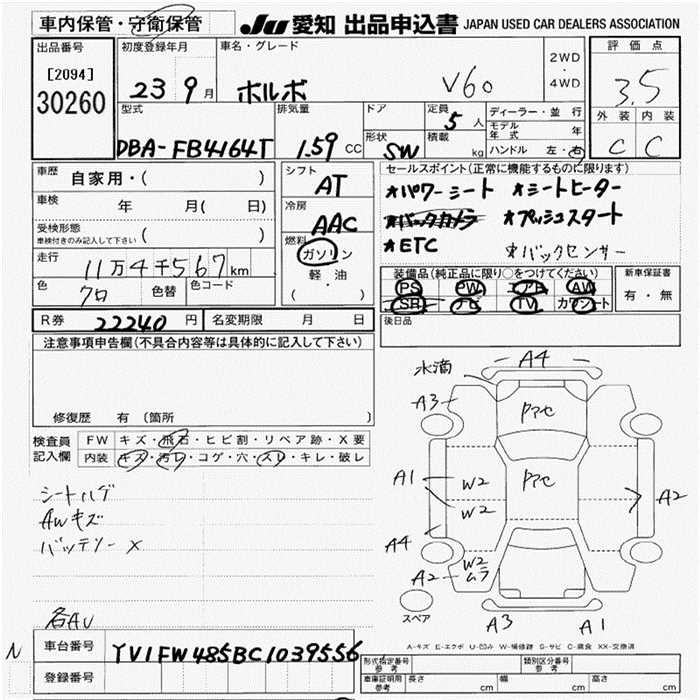 車内保管・守衛保管
JU 愛知 出品申込書 JAPAN USED CAR DEALERS ASSOCIATION
出品番号
[2094]
30260
初度登録年月
23 9月
車名・グレード
ボルボ V60
2WD
・
4WD
評価点
3.5
外装 内装
C C
型式
DBA-FB4164T
排気量
1.59 CC
ドア
形状
SW
定員
5人
積載
kg
ディーラー・並行
モデル年式 年
ハンドル 左・右
車歴
自家用・( )
車検
年 月( 日)
受検形態
車検付きのみ記入して下さい ( )
走行
11万4千567km
色
クロ
色替
色コード
シフト
AT
冷房
AAC
燃料
ガソリン
軽・油
( )
セールスポイント(正常に機能するものに限ります)
★パワーシート ★シートヒーター
★バックカメラ ★プッシュスタート
★ETC ☆バックセンサー
装備品(純正品に限り○をつけてください)
PS PW エアB AW
SR ナビ TV カワシート
新車保証書
有・無
後日品
R券 22240 円
名変期限 月 日
注意事項申告欄(不具合内容等は具体的に記入して下さい)
修復歴 有 〔箇所 〕
検査員
記入欄
FW キズ・飛石・ヒビ割・リペア跡・X要
内装 キズ・汚レ・コゲ・穴・スレ・キレ・破レ
シートハゲ
AWキズ
バッテリー X
各AU
水滴
A4
A3
アセ
A1
W2
アセ
W2
A2
A4
W2
ムラ
A2
スペア
A3
A1
A-キズ E-エクボ U-凹み W-補修跡 S-サビ C-腐食 XX-交換済
N
車台番号 YV1FW485BC1039556
登録番号
形式指定番号
参考
類別区分番号
参考
車庫証明用
参考
長さ cm
幅 cm
高さ cm